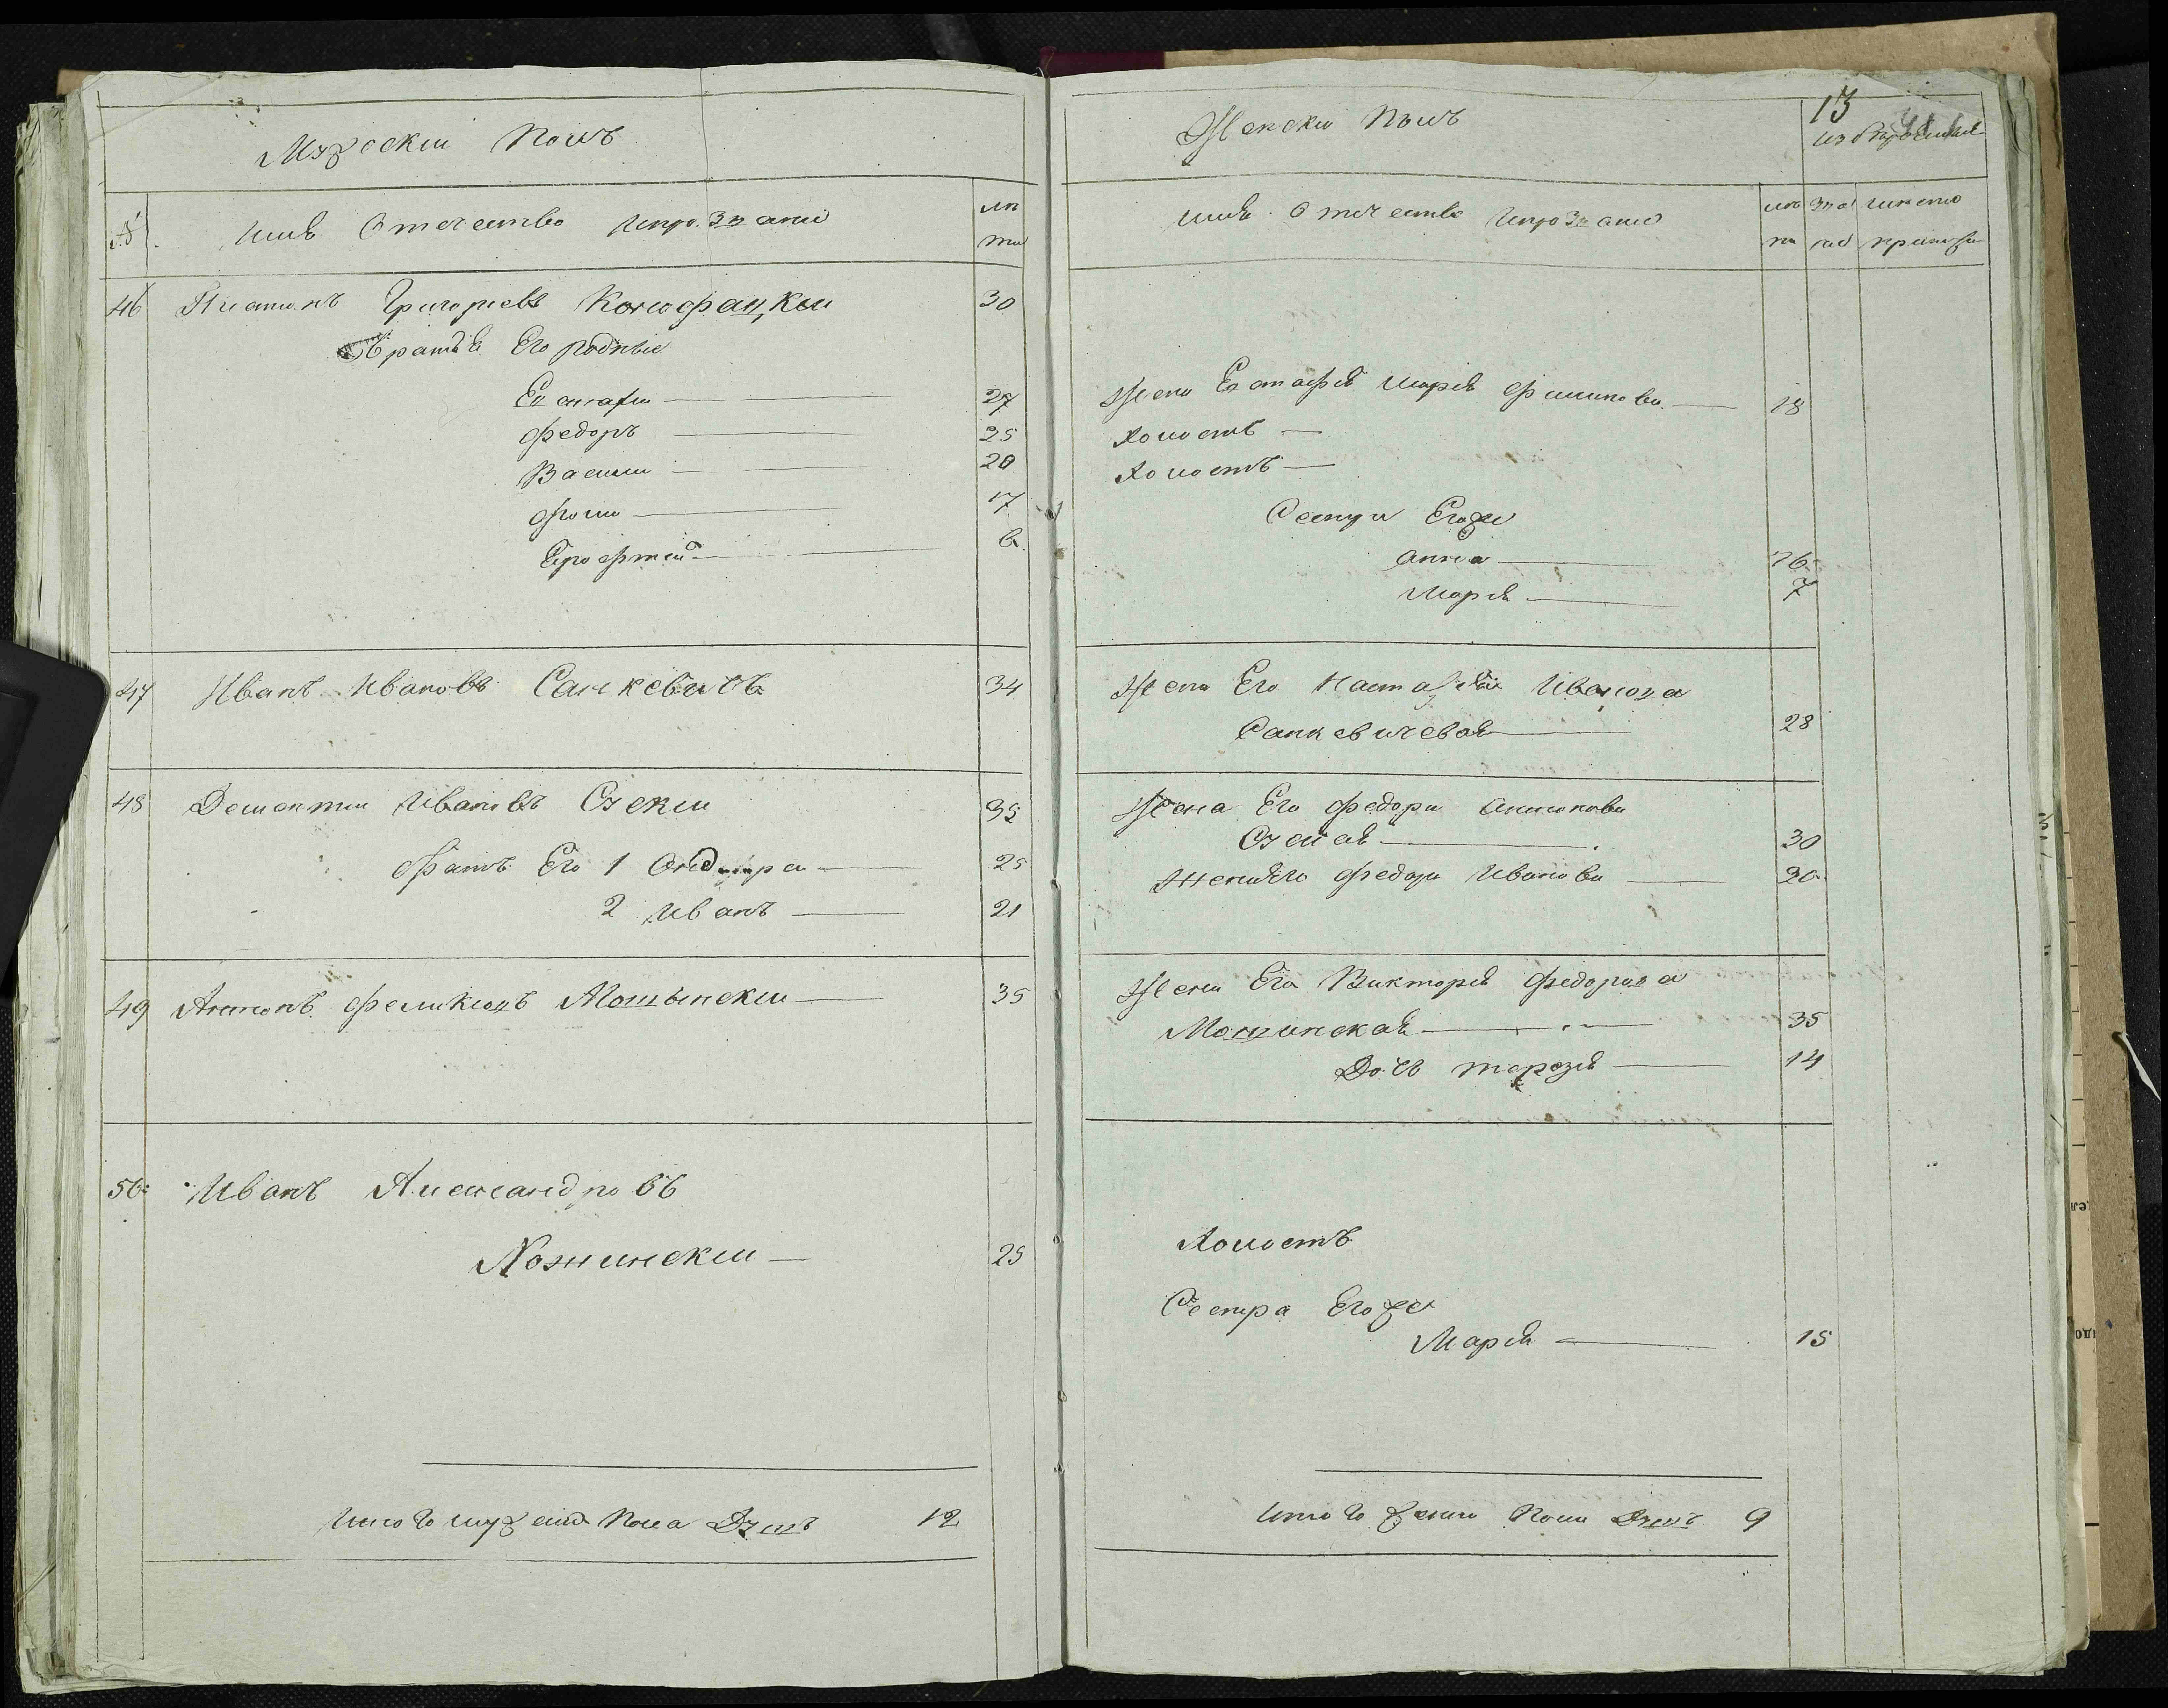 Мужески Полъ
№ Имя Отечество И прозвание
лета
46 Платонъ Григорьевъ 30
Братья Его родные
Евстафи 27
Федоръ 25
Васили 20
Фома 17
Ерофтей 6
47 Иванъ Ивановъ Санкевичъ 34
48 Дементи Ивановъ 35
братъ Его 1 Андрей 25
2 Иванъ 21
49 Антонъ Феликсовъ Мошынски 35
50 Иванъ Александровъ
Ножински 25
Итого мужска Пола Душъ 12
Женски Полъ
13
Имя Отечество И прозвание
лета
Жена Евстафия Марья Филипова 18
Холостъ
Холостъ
Сестры Егоже
Анна 16
Марья 7
Жена Его Настазия Иванова
Санкевичевая 28
Жена Его Федора Антонова
30
Жена Его Федора Иванова 20
Жена Его Викторья Федорова
Мошинская 35
Дочь Терезия 14
Холостъ
Сестра Егоже
Марья 15
Итого женска Пола Душъ 9